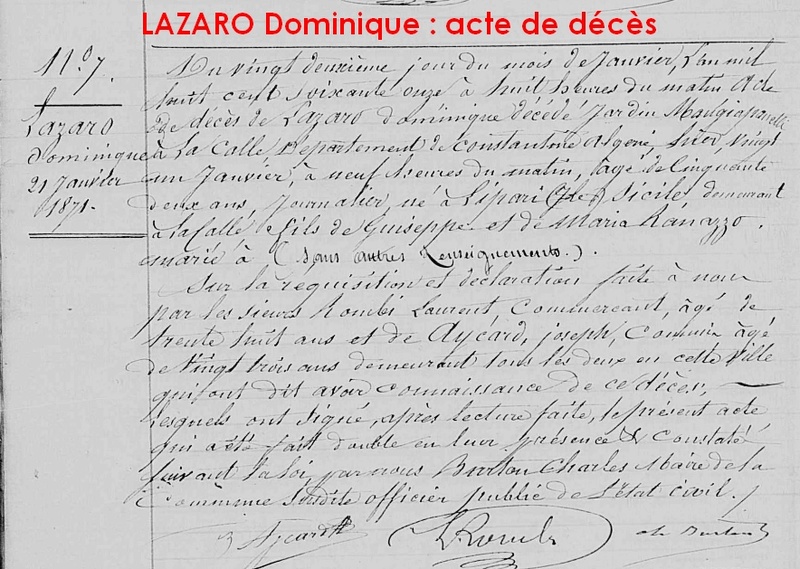 LAZARO Dominique : acte de décès
11.º 7.
Lazaro
dominique
21 Janvier
1871.
Du vingt deuxième jour du mois de Janvier, l'an mil
huit cent soixante onze à huit heures du matin Acte
de décès de Lazaro dominique décédé Jardin
à La Calle Département de Constantine Algérie, hier, vingt
un Janvier, à neuf heures du matin, âgé de Cinquante
deux ans, Journalier, né à Lipari (Ile) Sicile, demeurant
à la Calle, fils de Guiseppe et de Maria Ranazzo.
marié à (Sans autres Renseignements.).
Sur la requisition et déclaration faite à nous
par les sieurs Rombi Laurent, Commercant, âgé de
trente huit ans et de Aycard, joseph, Commis âgé
de Vingt trois ans demeurant tous les deux en cette Ville
qui ont dit avoir connaissance de ce décès,
lesquels ont signé, après lecture faite, le présent acte
qui a été fait double en leur présence & constaté
suivant la loi, par nous Burton Charles Maire de la
Commune susdite officier public de l'état civil.
J Aycard
L. Rombi
ch Burton